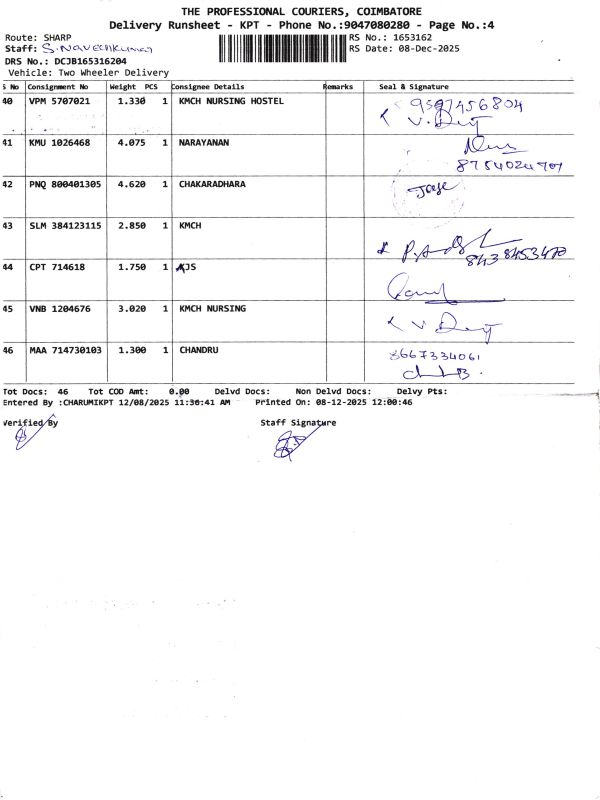 THE PROFESSIONAL COURIERS, COIMBATORE
Delivery Runsheet - KPT - Phone No.:9047080280 - Page No.:4
Route: SHARP
RS No.: 1653162
Staff: S.Naveenkumar
RS Date: 08-Dec-2025
DRS No.: DCJB165316204
Vehicle: Two Wheeler Delivery
S No Consignment No Weight PCS Consignee Details Remarks Seal & Signature
40 VPM 5707021 1.330 1 KMCH NURSING HOSTEL
41 KMU 1026468 4.075 1 NARAYANAN
42 PNQ 800401305 4.620 1 CHAKARADHARA
43 SLM 384123115 2.850 1 KMCH
8438453470
44 CPT 714618 1.750 1 KJS
45 VNB 1204676 3.020 1 KMCH NURSING
46 MAA 714730103 1.300 1 CHANDRU 8667334061
Tot Docs: 46 Tot COD Amt: 0.00 Delvd Docs: Non Delvd Docs: Delvy Pts:
Entered By :CHARUMIKPT 12/08/2025 11:36:41 AM Printed On: 08-12-2025 12:00:46
Verified By Staff Signature